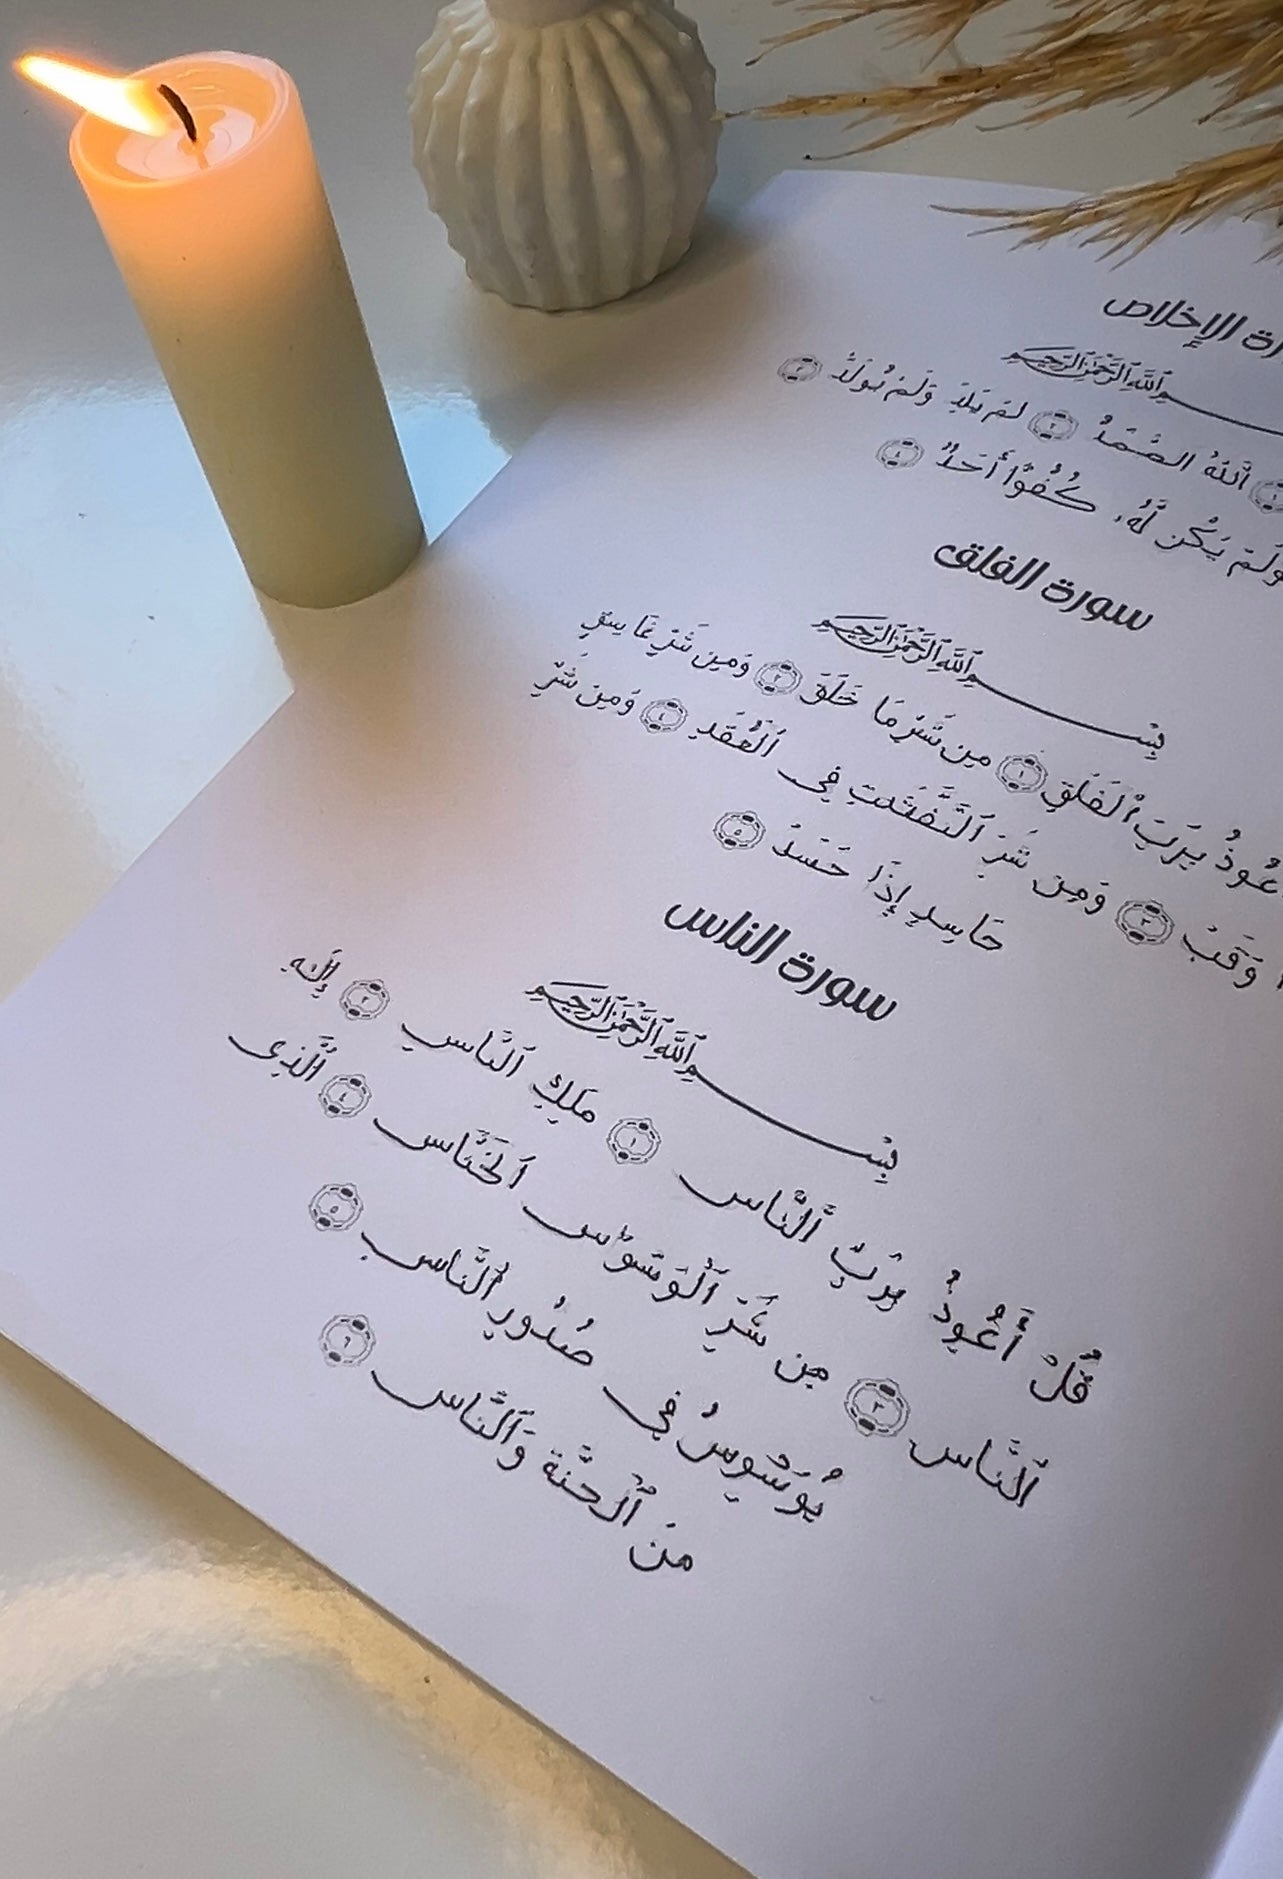 الإخلاص
بسم ٱللَّهِ ٱلرَّحْمَٰنِ ٱلرَّحِيمِ
١ ٱللَّهُ ٱلصَّمَدُ ٢ لَمْ يَلِدْ وَلَمْ يُولَدْ ٣
وَلَمْ يَكُن لَّهُۥ كُفُوًا أَحَدٌ ٤
سورة الفلق
بِسْمِ ٱللَّهِ ٱلرَّحْمَٰنِ ٱلرَّحِيمِ
أَعُوذُ بِرَبِّ ٱلْفَلَقِ ١ مِن شَرِّ مَا خَلَقَ ٢ وَمِن شَرِّ غَاسِقٍ
وَقَبَ ٣ وَمِن شَرِّ ٱلنَّفَّٰثَٰتِ فِى ٱلْعُقَدِ ٤ وَمِن شَرِّ
حَاسِدٍ إِذَا حَسَدَ ٥
سورة الناس
بِسْمِ ٱللَّهِ ٱلرَّحْمَٰنِ ٱلرَّحِيمِ
قُلْ أَعُوذُ بِرَبِّ ٱلنَّاسِ ١ مَلِكِ ٱلنَّاسِ ٢ إِلَٰهِ
ٱلنَّاسِ ٣ مِن شَرِّ ٱلْوَسْوَاسِ ٱلْخَنَّاسِ ٤ ٱلَّذِى
يُوَسْوِسُ فِى صُدُورِ ٱلنَّاسِ ٥
مِنَ ٱلْجِنَّةِ وَٱلنَّاسِ ٦